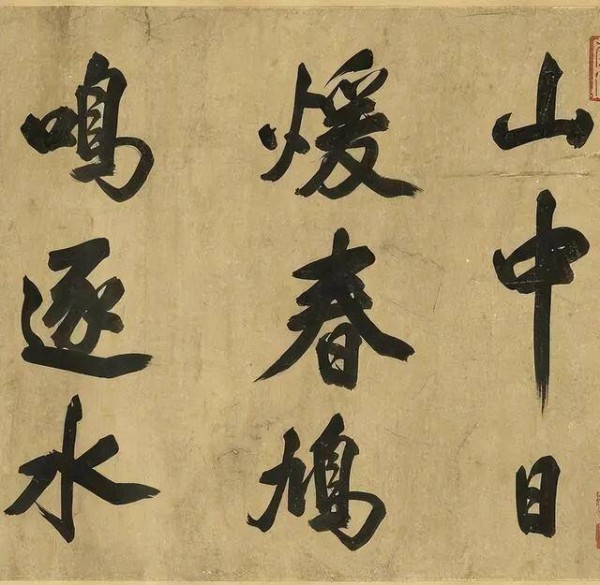 山中日
煖春鳩
鳴逐水